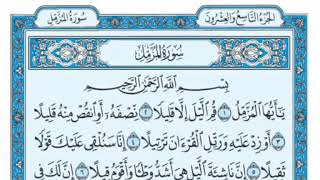 الجزء التاسع والعشرون
سورة المزمل
سورة المزمل
بسم الله الرحمن الرحيم
يَٰٓأَيُّهَا ٱلۡمُزَّمِّلُ ١ قُمِ ٱلَّيۡلَ إِلَّا قَلِيلٗا ٢ نِّصۡفَهُۥٓ أَوِ ٱنقُصۡ مِنۡهُ قَلِيلًا
٣ أَوۡ زِدۡ عَلَيۡهِ وَرَتِّلِ ٱلۡقُرۡءَانَ تَرۡتِيلًا ٤ إِنَّا سَنُلۡقِي عَلَيۡكَ قَوۡلٗا
ثَقِيلًا ٥ إِنَّ نَاشِئَةَ ٱلَّيۡلِ هِيَ أَشَدُّ وَطۡـٔٗا وَأَقۡوَمُ قِيلًا ٦ إِنَّ لَكَ فِي